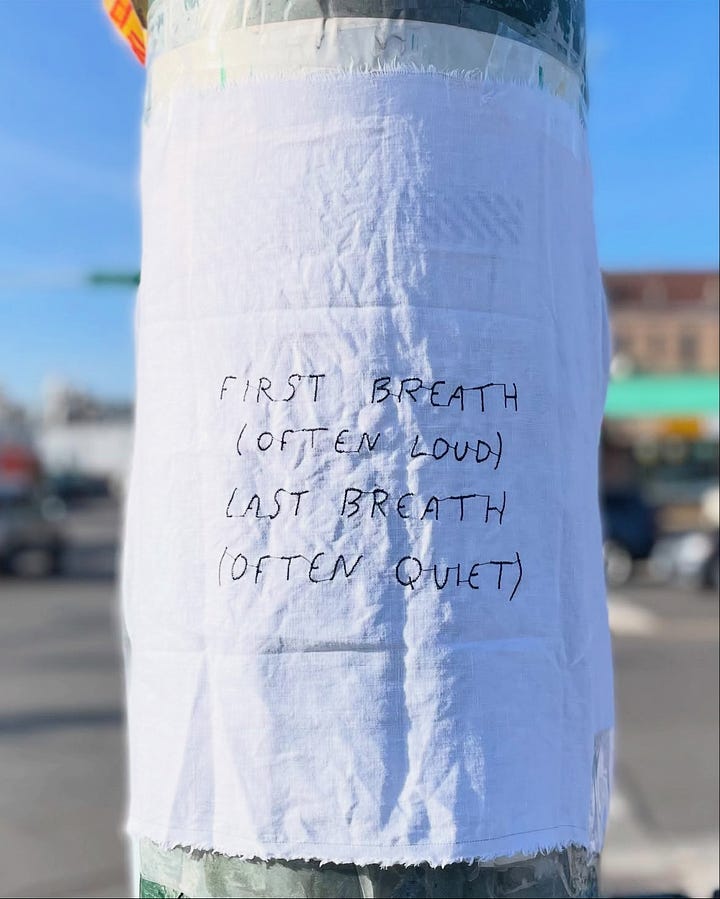 FIRST BREATH
(OFTEN LOUD)
LAST BREATH
(OFTEN QUIET)